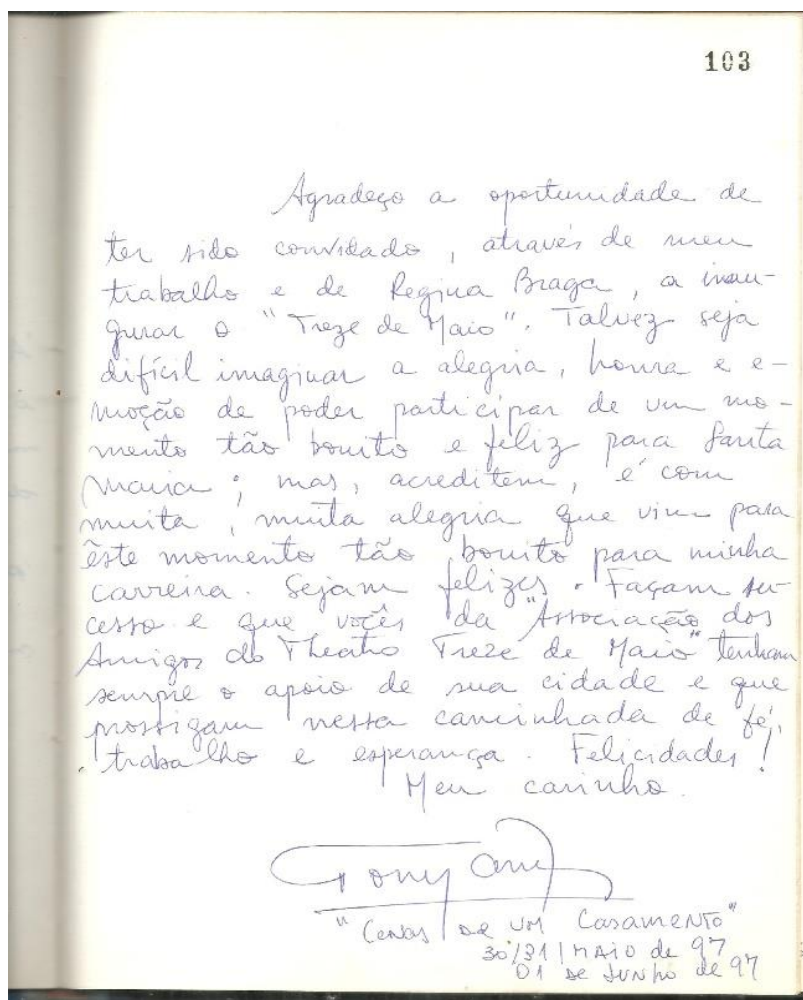 103
Agradeço a oportunidade de
ter sido convidado, através de meu
trabalho e de Regina Braga, a inau-
gurar o "Treze de Maio". Talvez seja
difícil imaginar a alegria, honra e e-
moção de poder participar de um mo-
mento tão bonito e feliz para Santa
Maria; mas, acreditem, é com
muita, muita alegria que vim para
êste momento tão bonito para minha
carreira. Sejam felizes. Façam su-
cesso e que vocês da "Associação dos
Amigos do Theatro Treze de Maio" tenham
sempre o apoio de sua cidade e que
prossigam nessa caminhada de fé,
trabalho e esperança. Felicidades!
Meu carinho.
Tony
"Cenas de um Casamento"
30/31/MAIO de 97
01 de JUNHO de 97